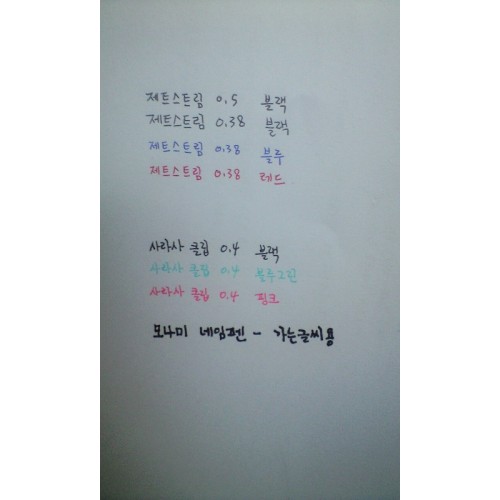 제트스트림 0.5 블랙
제트스트림 0.38 블랙
제트스트림 0.38 블루
제트스트림 0.38 레드
사라사 클립 0.4 블랙
사라사 클립 0.4 블루그린
사라사 클립 0.4 핑크
모나미 네임펜 - 가는글씨용